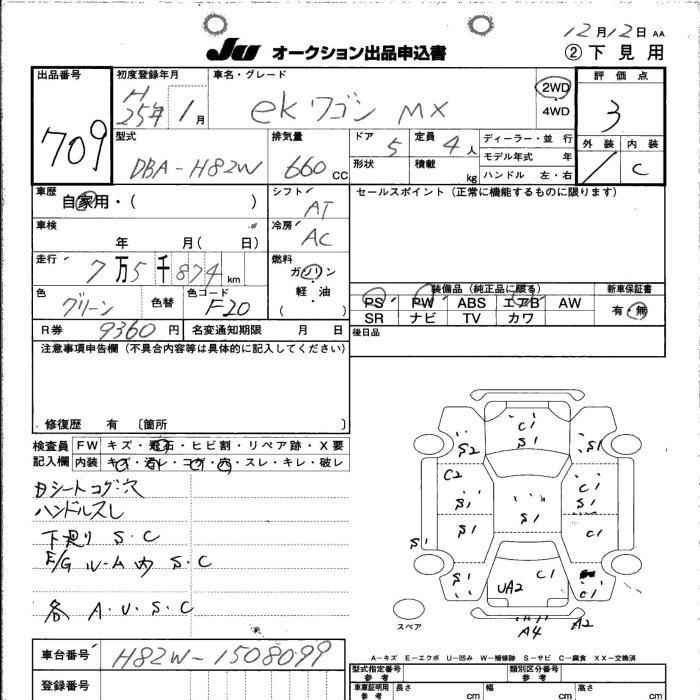 12月12日 AA
JU オークション出品申込書 ② 下見用
出品番号 709
初度登録年月 H 25年 1月
車名・グレード ekワゴン MX
2WD
4WD
評価点 3
外装 / 内装 C
型式 DBA-H82W
排気量 660 CC
ドア 5 定員 4人
形状 積載 kg
ディーラー・並行
モデル年式 年
ハンドル 左・右
車歴 自家用・( )
シフト AT
セールスポイント(正常に機能するものに限ります)
車検 年 月( 日)
冷房 AC
走行 7万5千874 km
燃料 ガソリン
軽・油
( )
色 グリーン 色替 色コード F20
装備品(純正品に限る)
PS PW ABS エアB AW
SR ナビ TV カワ
新車保証書
有・無
R券 9360円 名変通知期限 月 日
後日品
注意事項申告欄(不具合内容等は具体的に記入してください)
修復歴 有 〔箇所 〕
検査員 FW キズ・飛石・ヒビ割・リペア跡・X要
記入欄 内装 キズ・汚レ・コゲ・穴・スレ・キレ・破レ
Dシートコゲ穴
ハンドルスレ
下廻り S.C
E/G ルーム内 S.C
各 A.U.S.C
C1
S1
S2
S1
C2
S1
S1
C1
S1
S1
S1
C1
S1
S1
UA2
C1
C1
A4
A2
スペア
A-キズ E-エクボ U-凹み W-補修跡 S-サビ C-腐食 XX-交換済
車台番号 H82W-1508099
登録番号
型式指定番号 参考
類別区分番号 参考
車庫証明用 参考 長さ cm 幅 cm 高さ cm